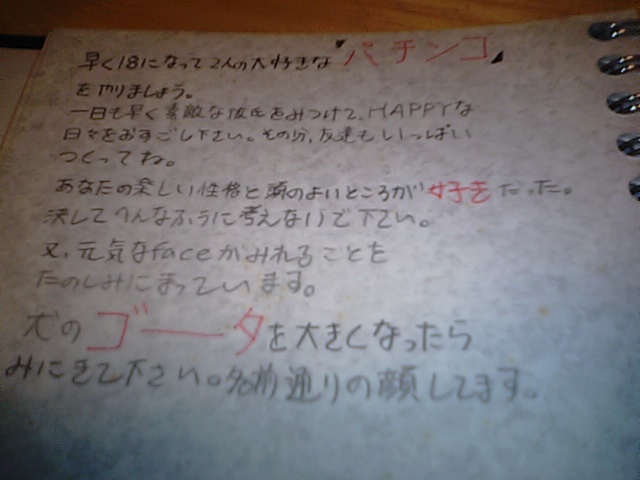 早く18になって2人の大好きな『パチンコ』
をやりましょう。
一日も早く素敵な彼氏をみつけて、HAPPYな
日々をおすごし下さい。その分、友達もいっぱい
つくってね。
あなたの楽しい性格と頭のよいところが好きだった。
決してへんなふうに考えないで下さい。
又、元気なfaceがみれることを
たのしみにまっています。
犬のゴータを大きくなったら
みにきて下さい。名前通りの顔してます。